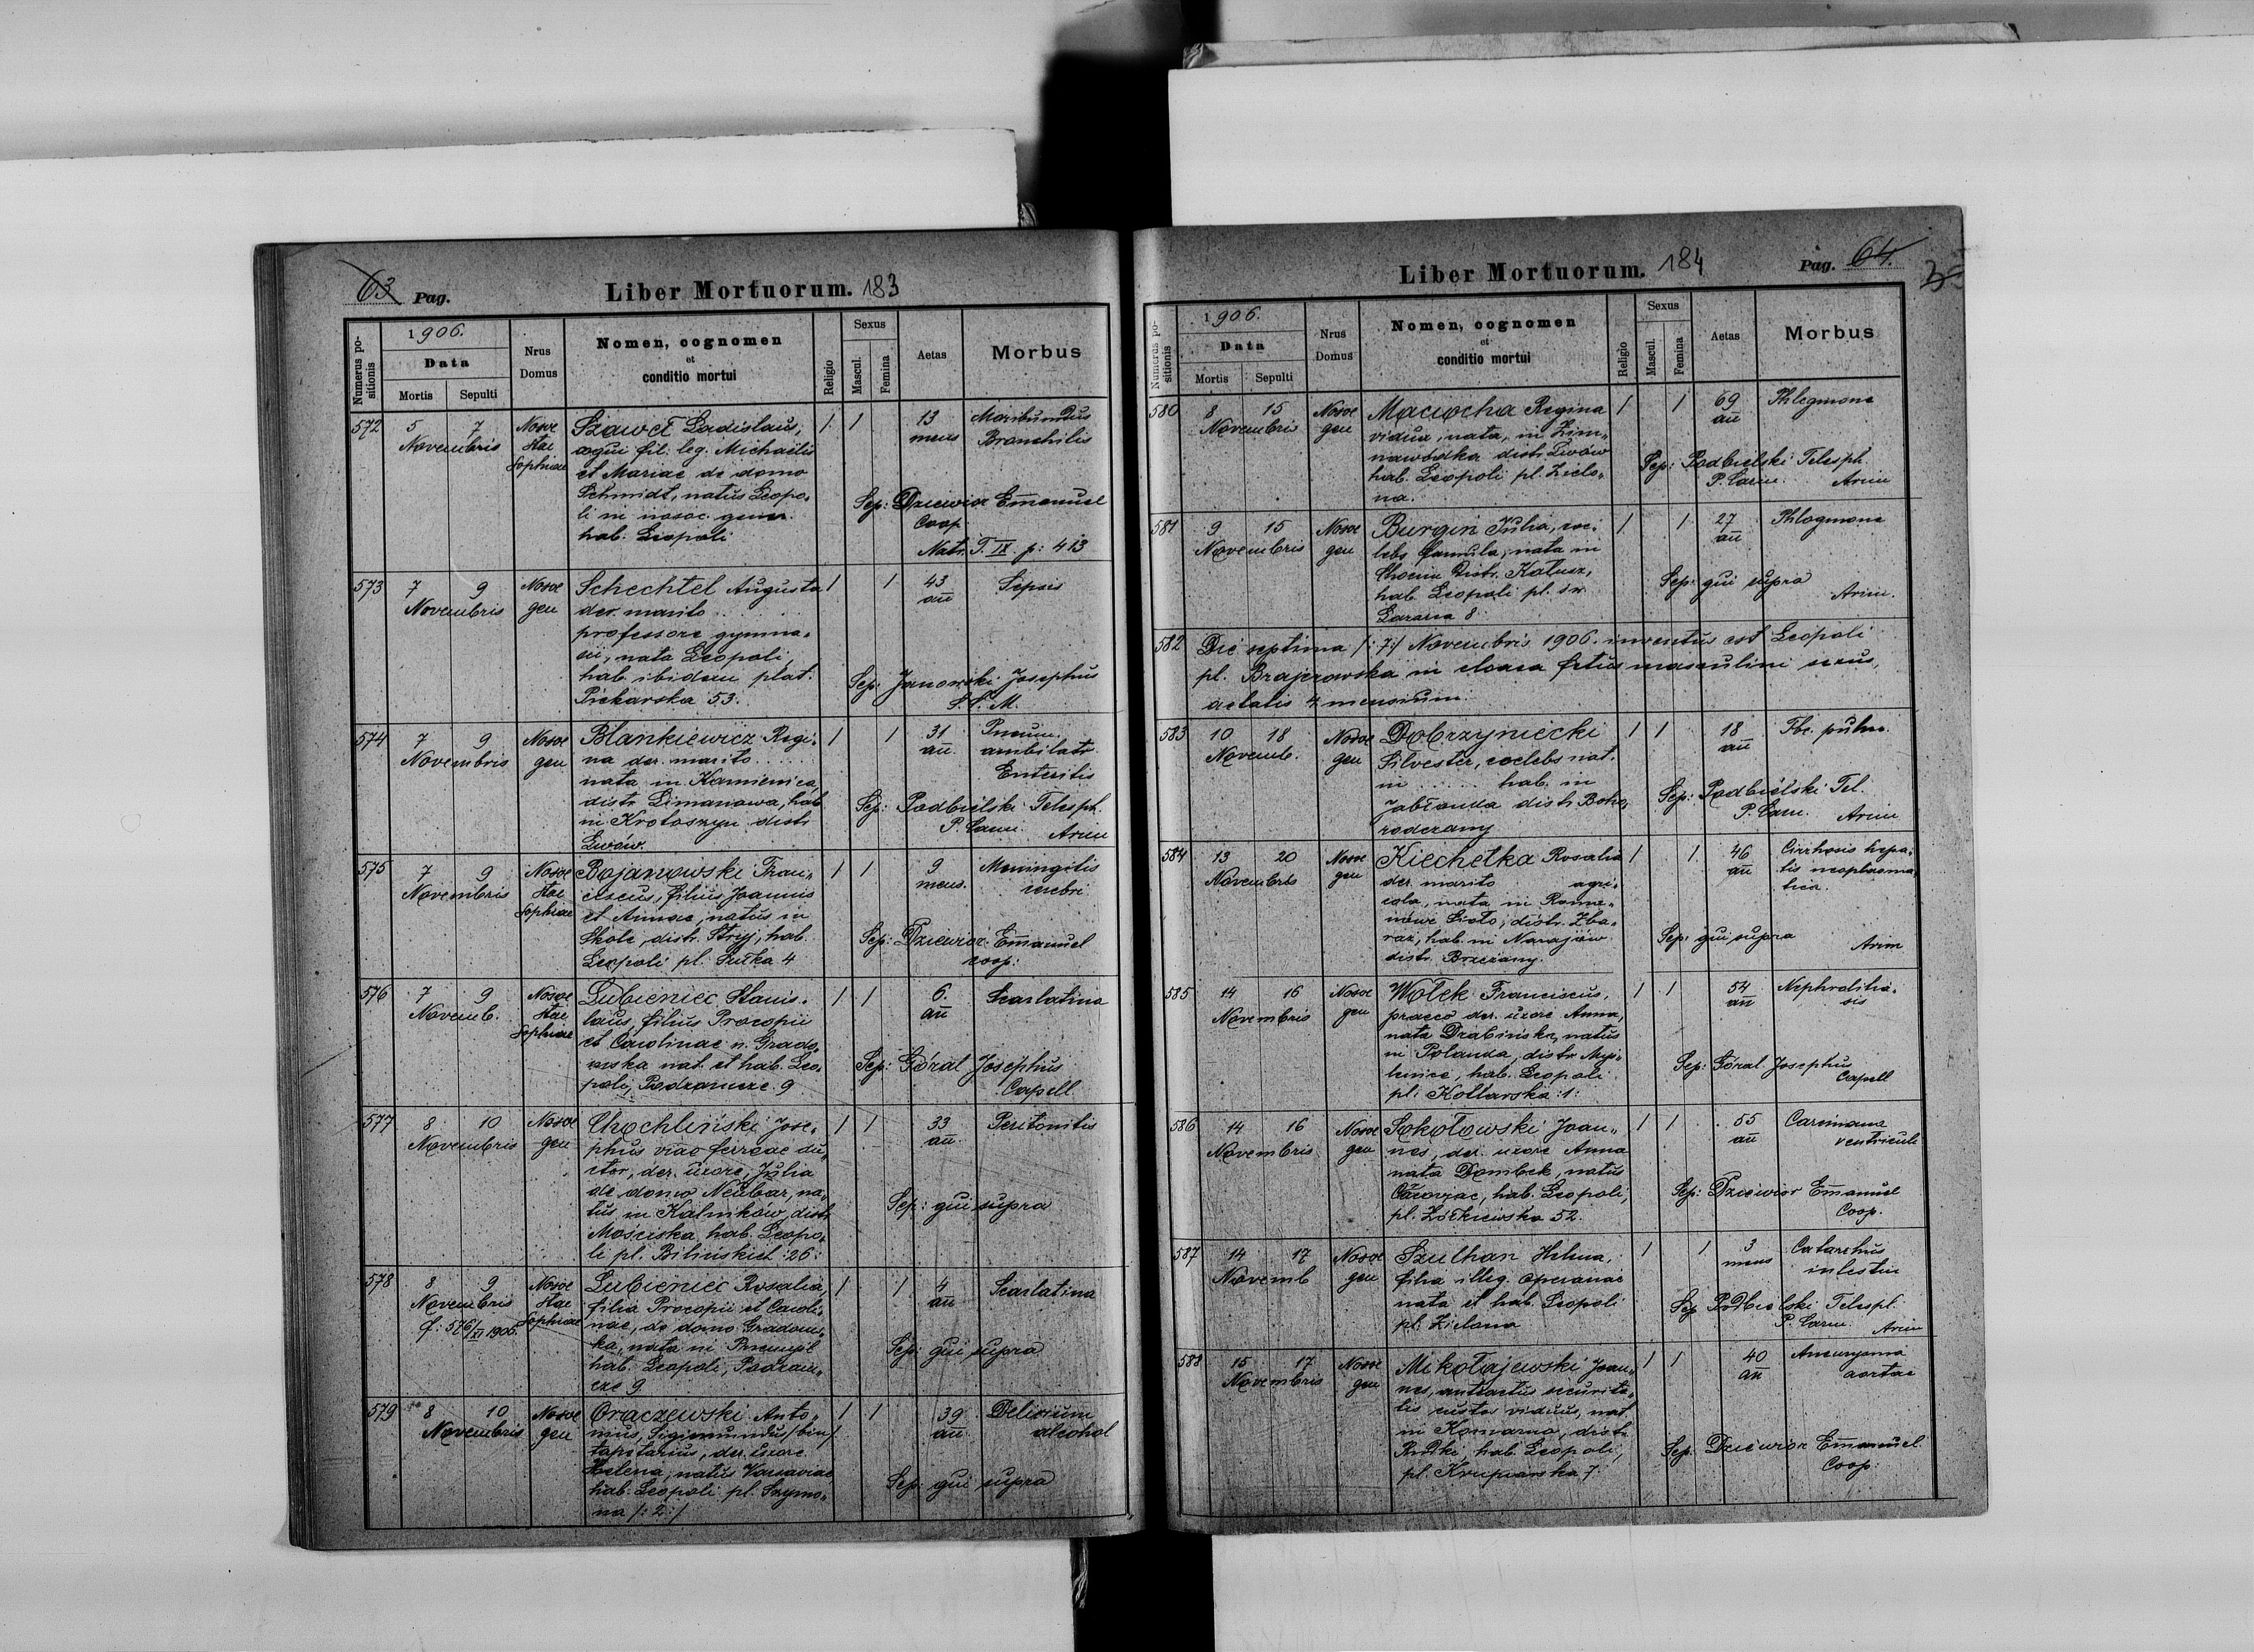 63 Pag.
Liber Mortuorum. 183
Numerus positionis
1906.
Data
Mortis
Sepulti
Nrus Domus
Nomen, cognomen
et
conditio mortui
Religio
Sexus
Mascul.
Femina
Aetas
Morbus
572 5 7 Novembris
Nosoc Stae Sophiae
Szaweł Ladislaus,
fil. leg. Michaelis
et Mariae de domo
Schmidt, natus Leopo-
li in nosoc. gener.
hab. Leopoli
1 1 13 mens
Moribundus
Bronchitis
Sep: Dziewior Emanuel
Coop.
Natr. T. IX. p: 413
573 7 9 Novembris
Nosoc gen
Schechtel Augusta
der. marito
professore gymna-
sii, nata Leopoli,
hab. ibidem plat.
Piekarska 53.
1 1 43 an
Sepsis
Sep: Janowski Josephus
574 7 9 Novembris
Nosoc gen
Blankiewicz Regi-
na der. marito . . . . .
nata in Kamienica
distr. Limanowa, hab
in Krotoszyn distr
Lwów.
1 1 31 an.
Pneum.
Enteritis
Sep: Podbielski Telesph.
P. Carm. Arim
575 7 9 Novembris
Nosoc Stae Sophiae
Bojanowski Fran-
ciscus, filius Joannis
et Annae, natus in
Skole, distr. Stryj, hab.
Leopoli pl.
1 1 9 mens.
Meningitis
cerebri
Sep: Dziewior Emanuel
coop:
576 7 9 Novemb.
Nosoc Stae Sophiae
Lubieniec Stanis-
laus, filius Procopii
et Carolinae n. Grado-
wska nat. et hab. Leo-
poli, Podzamcze 9
1 1 6. an
Scarlatina
Sep: Góral Josephus
Capell.
577 8 10 Novembris
Nosoc gen
Chochliński Jose-
phus viae ferreae du-
ctor, der. uxore, Julia
de domo Neubar, na-
tus in Kalników, distr
Mościska, hab. Leopo-
li pl. Bilińskich :26:
1 1 33 an.
Peritonitis
Sep: qui supra
578 8 9 Novembris
cf: 576/XI 1906
Nosoc Stae Sophiae
Lubieniec Rosalia,
filia Procopii et Caroli-
nae, de domo Gradows-
ka, nata in Przemyśl
hab. Leopoli, Podzam-
cze 9
1 1 4 an
Scarlatina
Sep: qui supra
579 8 10 Novembris
Nosoc gen
Oraczewski Anto-
nius, Sigismundus /bin/
tapetarius, der. uxore
Helena, natus Varsaviae
hab: Leopoli pl. Szymo-
na /:2:/
1 1 39 an
Delirium
alcohol
Sep: qui supra
Liber Mortuorum. 184
Pag. 64.
Numerus positionis
1906.
Data
Mortis
Sepulti
Nrus Domus
Nomen, cognomen
et
conditio mortui
Religio
Sexus
Mascul.
Femina
Aetas
Morbus
580 8 15 Novembris
Nosoc gen
Maciocha Regina
vidua, nata, in Zim-
nawodka distr. Lwów
hab. Leopoli pl. Zielo-
na.
1 1 69 an
Phlegmone
Sep: Podbielski Telesph.
P. Carm. Arim
581 9 15 Novembris
Nosoc gen
Burgin Julia, coe-
lebs famula, nata in
Distr. Kałusz,
hab. Leopoli pl. św
Łazarza 8
1 1 27 an
Phlegmone
Sep: qui supra
Arim.
582 Die septima /:7:/ Novembris 1906. inventus est Leopoli
pl. Brajerowska in cloaca fetus masculini sexus,
aetatis 4 mensium.
583 10 18 Novemb.
Nosoc gen
Dobrzyniecki
Silvester, coelebs nat.
in . . . . . hab. in
Jabłonka distr Boho-
rodczany
1 1 18 an
Tbc. pulm.
Sep: Podbielski Tel.
P. Carm. Arim
584 13 20 Novembris
Nosoc gen
Kiechelka Rosalia
der. marito agri-
cola, nata in Roma-
nowe Sioło, distr. Zba-
raż, hab. in Narajów
distr. Brzeżany.
1 1 46 an
Cirrhosis hepa-
tis neoplasma-
tica.
Sep: qui supra
Arim
585 14 16 Novembris
Nosoc gen
Wołek Franciscus,
praeco der. uxore Anna,
nata Drabińska, natus
in Polanda, distr. Myś-
lenice, hab. Leopoli
pl: Kotlarska :1:
1 1 54 an
Nephrolithia-
sis
Sep: Góral Josephus
Capell
586 14 16 Novembris
Nosoc gen
Sokołowski Joan-
nes, der. uxore Anna
nata Dombek, natus
Cracoviae, hab. Leopoli,
pl. Żółkiewska 52.
1 1 55 an
Carcinoma
ventriculi
Sep: Dziewior Emanuel
Coop.
587 14 17 Novemb
Nosoc gen
Szulhan Helena,
filia illeg. operariae
nata et hab. Leopoli
pl. Zielona
1 1 3 mens
Catarrhus
intestin
Sep Podbielski Telespl.
P. Carm. Arim
588 15 17 Novembris
Nosoc gen
Mikołajewski Joan-
nes, securita-
tis custos viduus, nat.
in Komarno, distr.
Rudki, hab. Leopoli,
pl. Krupiarska 7.
1 1 40 an
Aneurysma
aortae
Sep: Dziewior Emanuel
Coop: